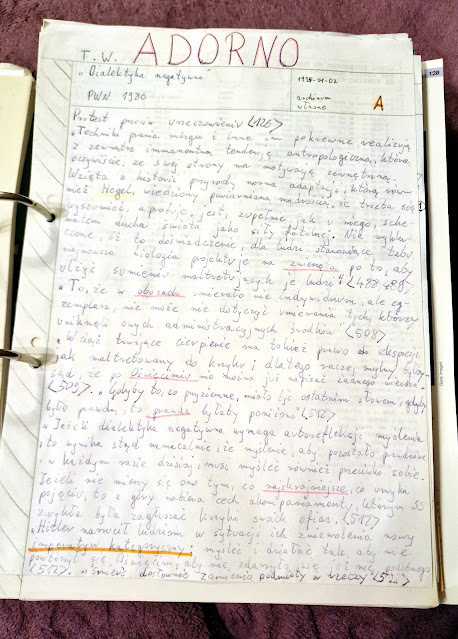 T. W. ADORNO
"Dialektyka negatywna"
PWN 1986
archiwum
własne
A
Protest przeciw urzeczowieniu <126>
"Techniki prania mózgu i inne im pokrewne realizują
z zewnątrz immanentną tendencję antropologiczną, która
oczywiście, ze swej strony ma motywację zewnętrzną.
Wzięta z historii przyrody norma adaptacji, którą rów-
nież Hegel, wiedziony mądrością, że trzeba się
wyszumieć, aprobuje, jest, zupełnie jak u niego, sche-
matem ducha świata jako siły fatalnej. Nie wyklu-
czone, iż to doświadczenie, dla ludzi stanowiące tabu,
najnowsza biologia projektuje na zwierzęta po to, aby
ulżyć sumieniu maltretujących je ludzi"
"To, że w obozach umierało nie indywiduum, ale eg-
zemplarz, nie może nie dotyczyć umierania tych, którzy
uniknęli owych administracyjnych środków" <508>
"Wciąż trwające cierpienie ma takież prawo do ekspresji
jak maltretowany do krzyku i dlatego raczej mylny byłby
sąd, że po Oświęcimiu nie można już napisać żadnego wiersza"
<509>. "Gdyby to, co przyziemne, miało być ostatnim słowem, gdyby
było prawdą, to prawda byłaby poniżona" <512>
"Jeżeli dialektyka negatywna wymaga autorefleksji myślenia,
to wynika stąd namacalnie, że myślenie, aby pozostało prawdziwe
w każdym razie dzisiaj, musi myśleć również przeciwko sobie.
Jeżeli nie mierzy się ono tym, co najskrajniejsze, co umyka
pojęciu, to z góry nabiera cech akompaniamentu, którym SS
zwykła była zagłuszać krzyki swych ofiar" <512>
"Hitler narzucił ludziom w sytuacji ich zniewolenia nowy
imperatyw kategoryczny: myśleć i działać tak, aby nie
powtórzył się Oświęcim, aby nie zdarzyło się już nic podobnego"
<512>. "Śmierć dosłownie zamienia podmioty w rzeczy" <522>
128